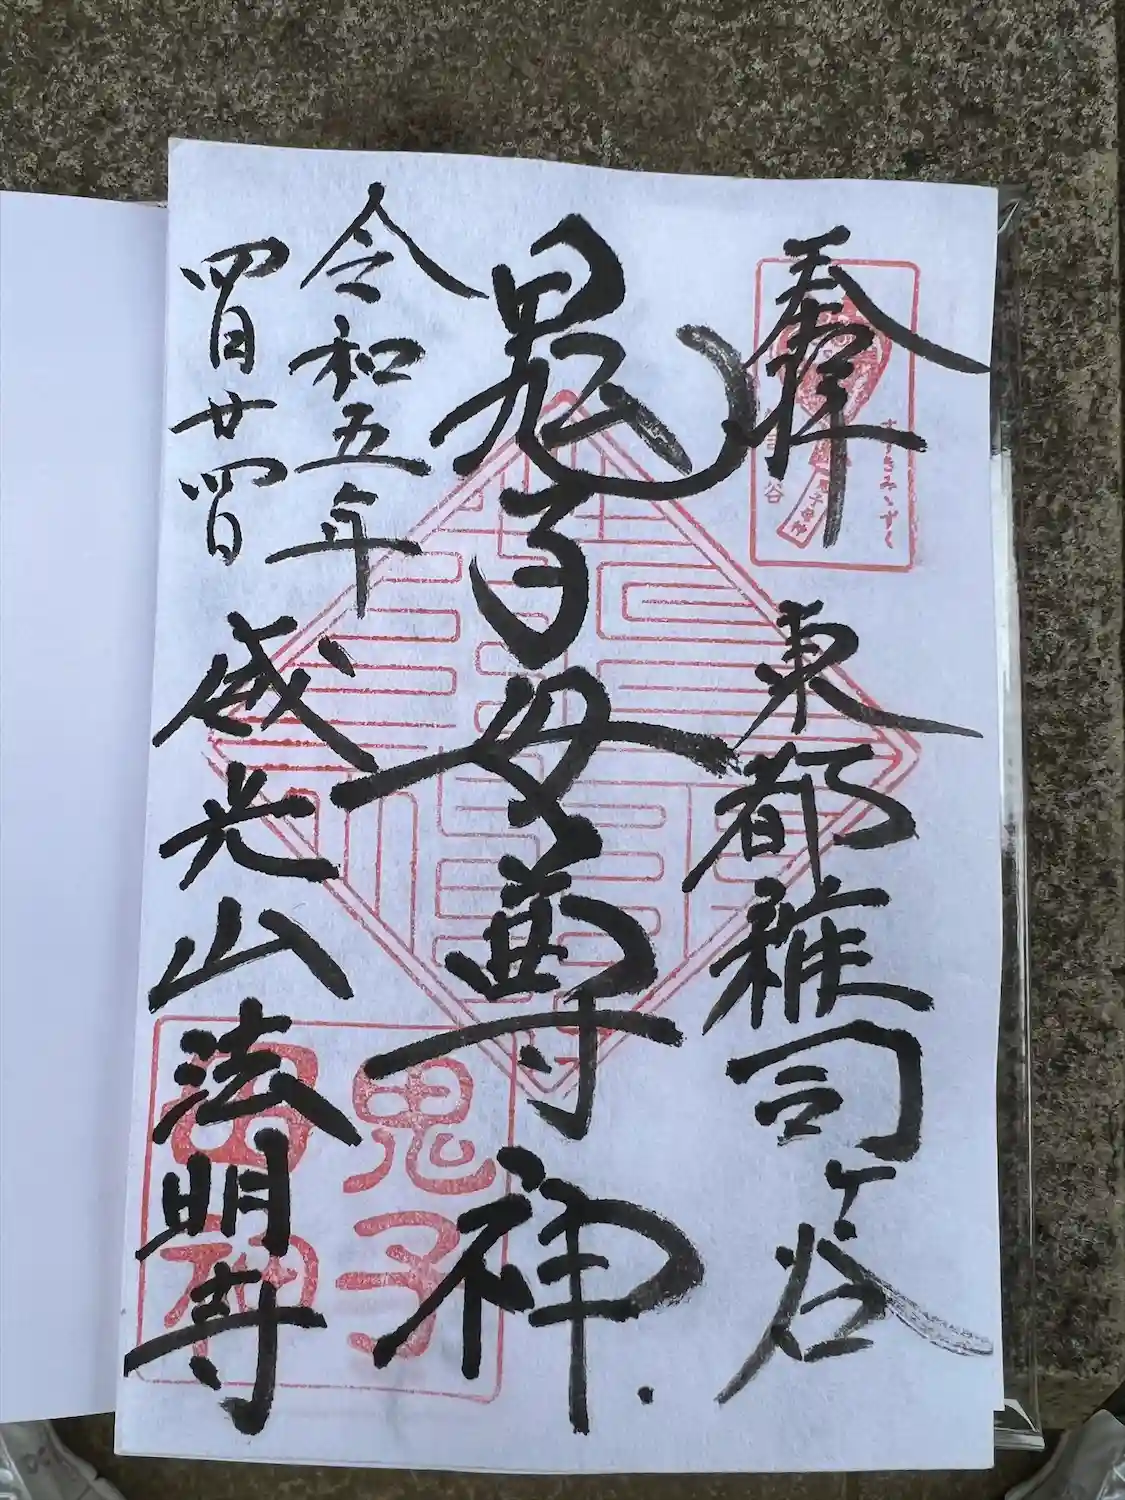 奉拝
東都雑司ヶ谷
鬼子母尊神
令和五年
四月廿四日
威光山法明寺
すすきみゝずく
鬼子母神